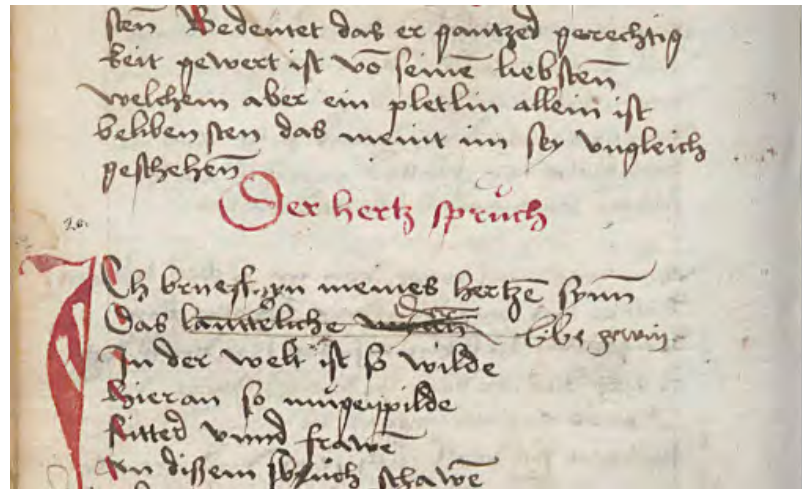 sten Bedeutet das er gantzer gerechtig
keit gewert ist vō seinē liebsten̄
welchem aber ein pletlin allein ist
beliben sten das meint im sey vngleich
geschehen̄
Der hertz sprůch
20.
Ich brueff yn meines hertzē synn̄
Das lautterliche
In der welt ist so wilde
Hieran so mügen pilde
Ritter vnnd frawē
An dißem sprůch schawē